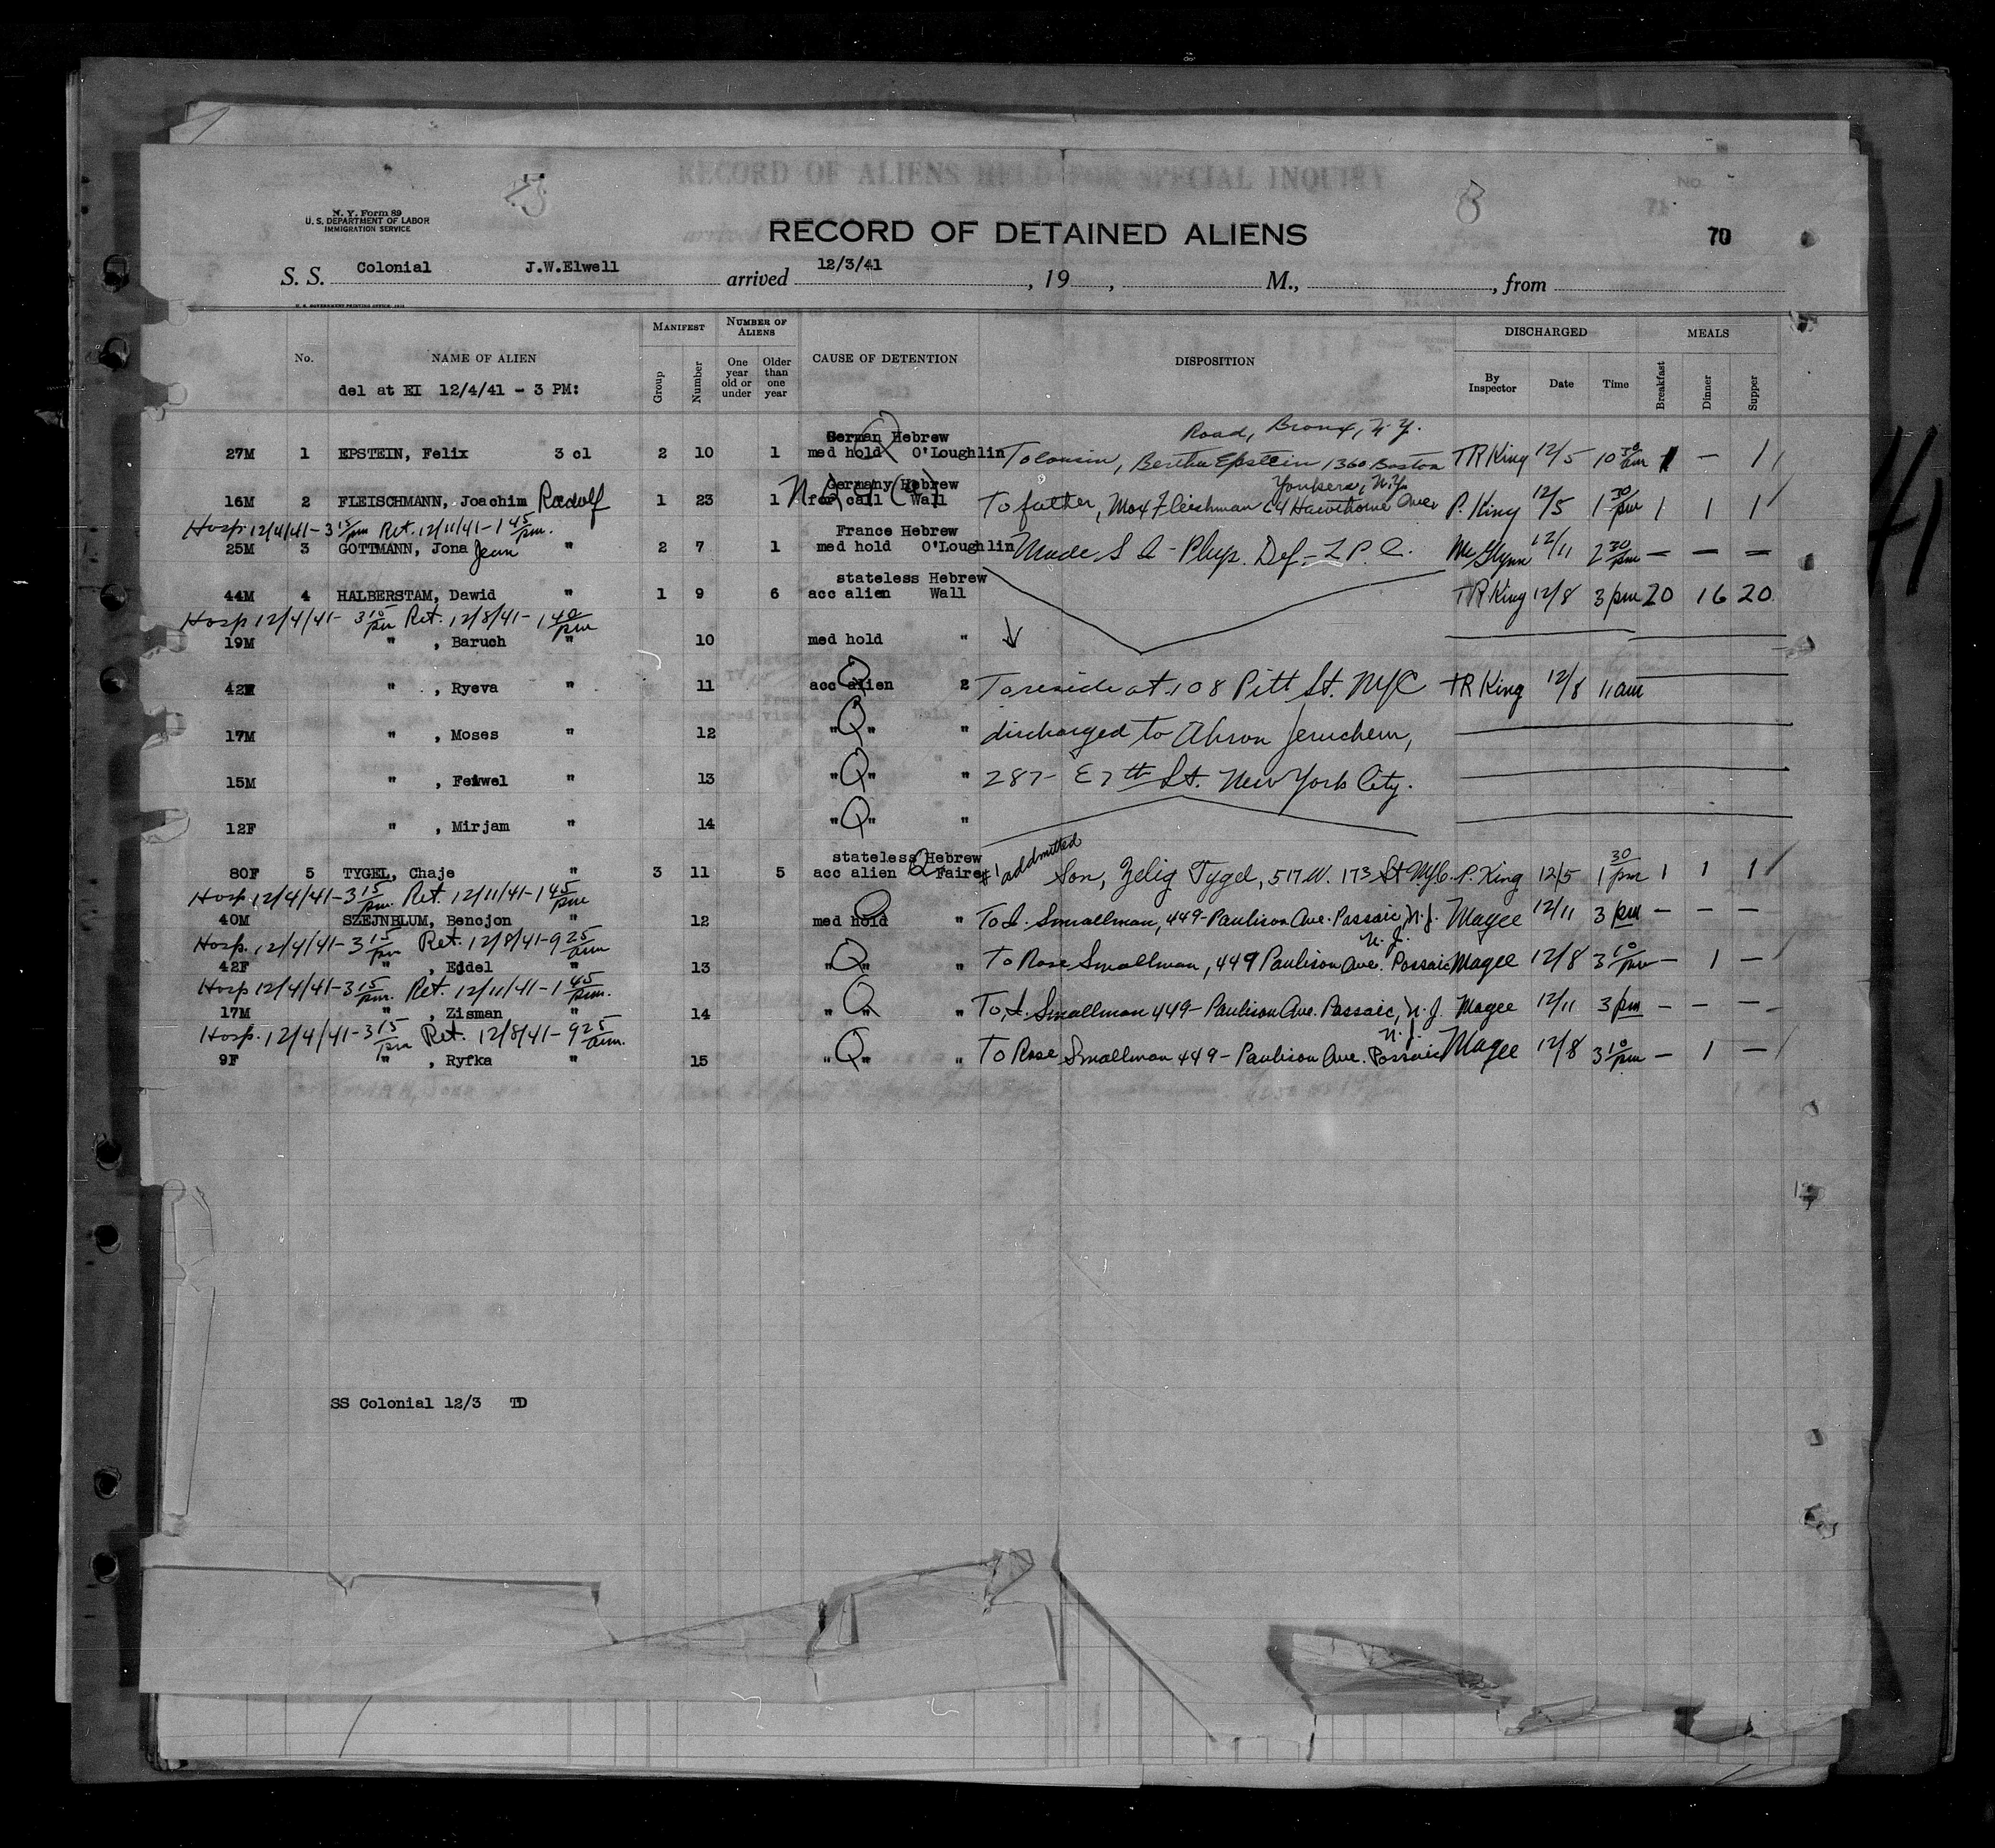 RECORD OF ALIENS HELD FOR SPECIAL INQUIRY
No.
71
N. Y. Form 89
U. S. DEPARTMENT OF LABOR
IMMIGRATION SERVICE
RECORD OF DETAINED ALIENS
70
S. S. Colonial J.W.Elwell arrived 12/3/41, 19, M., from
U. S. GOVERNMENT PRINTING OFFICE
No. NAME OF ALIEN MANIFEST Group Number NUMBER OF ALIENS One year old or under Older than one year CAUSE OF DETENTION DISPOSITION DISCHARGED By Inspector Date Time MEALS Breakfast Dinner Supper
del at EI 12/4/41 - 3 PM:
German Hebrew Road, Bronx, N.Y.
27M 1 EPSTEIN, Felix 3 cl 2 10 1 med hold O'Loughlin To cousin, Bertha Epstein 1360 Boston TR King 12/5 10 30 am 1 — 1
Germany Hebrew Yonkers, N.Y.
16M 2 FLEISCHMANN, Joachim Rudolf 1 23 1 for call Wall To father, Max Fleishman 64 Hawthorne Ave P. King 12/5 1 30 pm 1 1 1
Hosp 12/4/41 - 3 15 pm Ret. 12/11/41 - 1 45 pm. France Hebrew
25M 3 GOTTMANN, Jona Jean " 2 7 1 med hold O'Loughlin Made S I - Phys. Def - L P C. McGlynn 12/11 2 30 pm — — —
stateless Hebrew
44M 4 HALBERSTAM, Dawid " 1 9 6 acc alien Wall TR King 12/8 3 pm 20 16 20
Hosp 12/4/41 - 3 15 pm Ret. 12/8/41 - 1 40 pm
19M " , Baruch " 10 med hold "
42F " , Ryeva " 11 acc alien 2 To reside at 108 Pitt St. NYC TR King 12/8 11 am
17M " , Moses " 12 " " " discharged to Ahron Jeruchem,
15M " , Feiwel " 13 " " " 287 - E 7th St. New York City.
12F " , Mirjam " 14 " " "
stateless Hebrew #1 addmitted
80F 5 TYGEL, Chaje " 3 11 5 acc alien Faire Son, Zelig Tygel, 517 W. 173 St NYC. P. King 12/5 1 30 pm 1 1 1
Hosp 12/4/41 - 3 15 pm. Ret. 12/11/41 - 1 45 pm
40M SZEJNBLUM, Bencjon " 12 med hold " To I. Smallman, 449 - Paulison Ave. Passaic, N.J. Magee 12/11 3 pm — — —
Hosp. 12/4/41 - 3 15 pm Ret. 12/8/41 - 9 25 am N.J.
42F " , Eidel " 13 " " " To Rose Smallman, 449 Paulison Ave. Passaic Magee 12/8 3 10 pm — 1 —
Hosp 12/4/41 - 3 15 pm. Ret. 12/11/41 - 1 45 pm.
17M " , Zisman " 14 " " " To I. Smallman 449 - Paulison Ave. Passaic, N.J. Magee 12/11 3 pm — — —
Hosp. 12/4/41 - 3 15 pm Ret. 12/8/41 - 9 25 am. N.J.
9F " , Ryfka " 15 " " " To Rose Smallman 449 - Paulison Ave. Passaic Magee 12/8 3 10 pm — 1 —
SS Colonial 12/3 TD
41